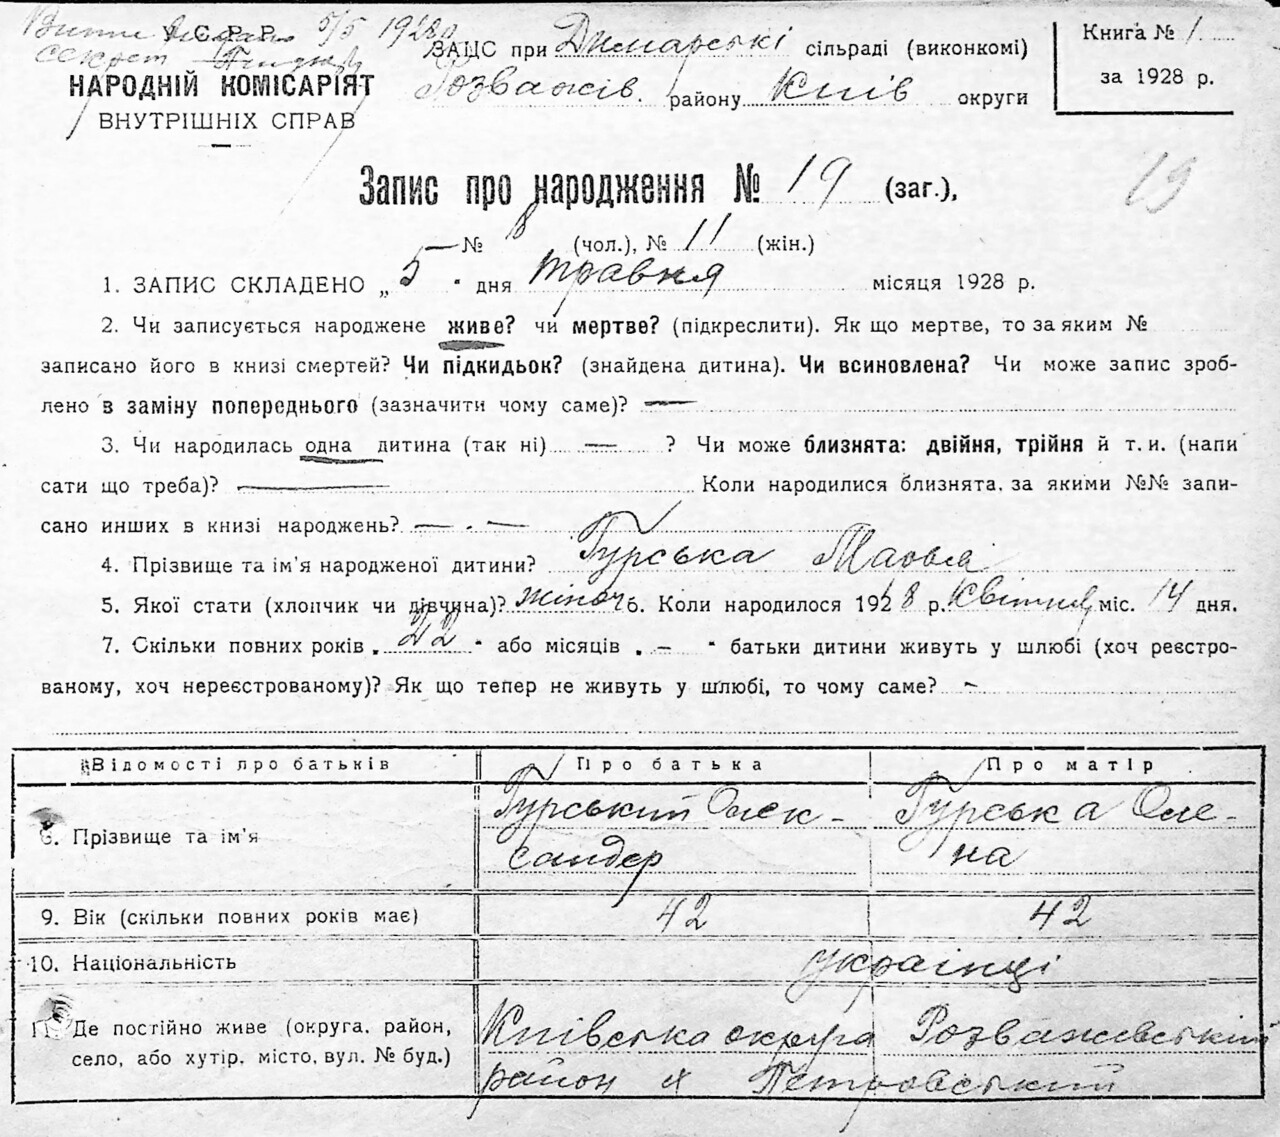 У. С. Р. Р. 5/5 1928 р
ЗАЦС при Димарські сільраді (виконкомі)
Книга № 1
секрет
НАРОДНІЙ КОМІСАРІЯТ
Розважів. району Київ округи
за 1928 р.
ВНУТРІШНІХ СПРАВ
Запис про народження № 19 (заг.),
19
№ 8 (чол.), № 11 (жін.)
1. ЗАПИС СКЛАДЕНО „ 5 " дня травня місяця 1928 р.
2. Чи записується народжене живе? чи мертве? (підкреслити). Як що мертве, то за яким №
записано його в книзі смертей? Чи підкидьок? (знайдена дитина). Чи всиновлена? Чи може запис зроб-
лено в заміну попереднього (зазначити чому саме)? —
3. Чи народилась одна дитина (так ні) — ? Чи може близнята: двійня, трійня й т. и. (напи
сати що треба)? — Коли народилися близнята, за якими №№ запи-
сано инших в книзі народжень? — . —
4. Прізвище та ім'я народженої дитини? Гурська
5. Якої стати (хлопчик чи дівчина)? жіноч 6. Коли народилося 1928 р. Квітня міс. 14 дня.
7. Скільки повних років „ 22 " або місяців „ — " батьки дитини живуть у шлюбі (хоч реєстро-
ваному, хоч нереєстрованому)? Як що тепер не живуть у шлюбі, то чому саме? -
Відомості про батьків Про батька Про матір
8. Прізвище та ім'я Гурський Олек- Гурська Оле-
сандер на
9. Вік (скільки повних років має) 42 42
10. Національність українці
11. Де постійно живе (округа, район, Київська округа Розважівський
село, або хутір, місто, вул. № буд.) район х Петровський